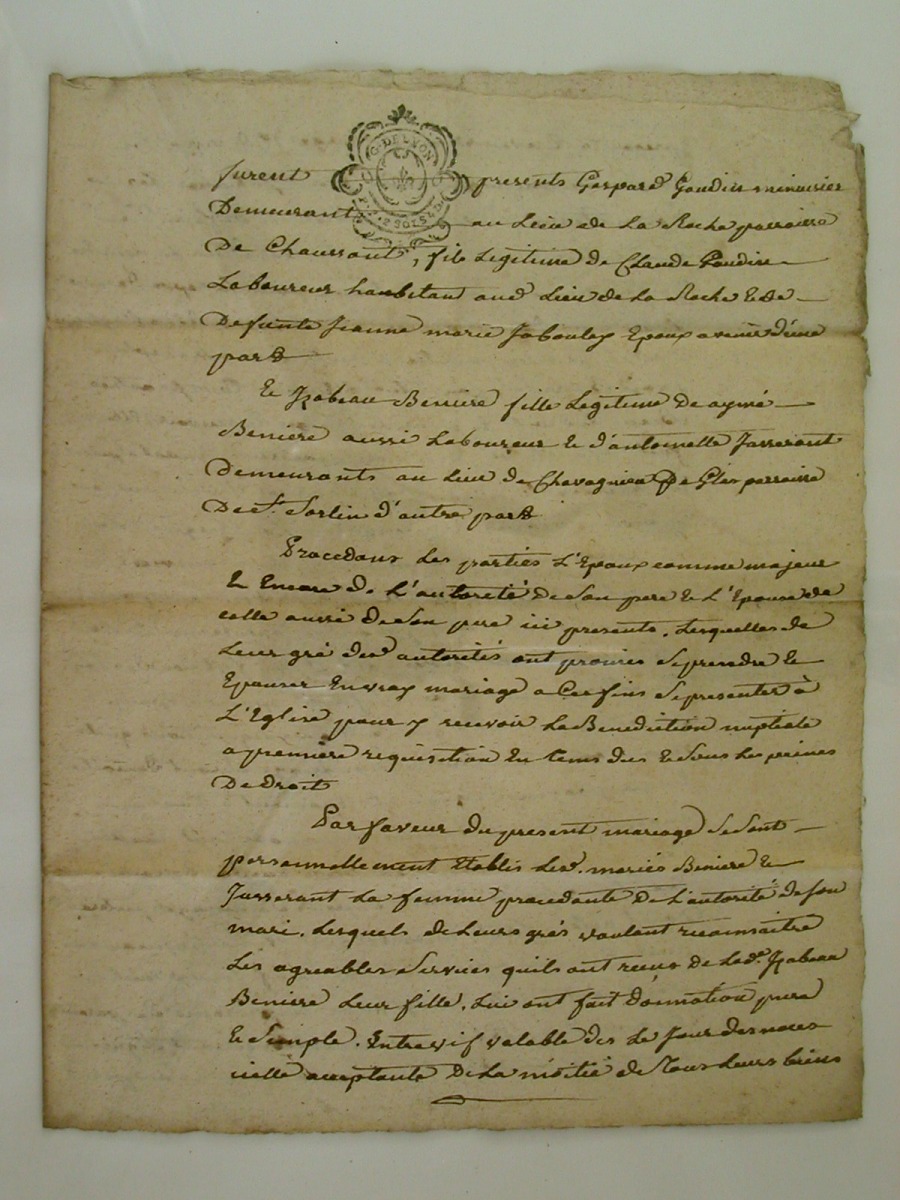 G. DE LYON
2 SOLS 4 D
furent presents Gaspard Goudin menuisier
Demeurant au Lieu de La Roche parroisse
De Chaussant, fils Legitime de Claude Goudin
Laboureur habitant aud Lieu de La Roche & de
Defunte Jeanne marie Jaboulay Epoux avenir d'une
part
Et Izabeau Beniere fille Legitime De aymé
Beniere aussi Laboureur & d'antoinette Jusserant
Demeurants au Lieu de parroisse
De St. Sorlin d'autre part
Procedans Les parties L'Epoux comme majeur
& Encore de L'autorité De Son pere & L'Epouse de
celle aussi De Son pere ici presents, Lesquelles de
Leur gré desd autorités ont promis Se prendre &
Epouser En vray mariage a Ces fins Se presenter à
L'Eglise pour y recevoir La Benediction nuptiale
a premiere requisition En tems dus & Sous Les peines
De Droit
Par faveur du present mariage Se Sont
personnellement Etablis Lesd. mariés Beniere &
Jusserant La femme procedante De L'autorité de son
mari, Lesquels de Leurs grés voulant reconnaitre
Les agreables Services quils ont reçus De Lade. Izabeau
Beniere Leur fille, Lui ont fait Donnation pure
& Simple, Entre vif valable des Le Jour des noces
icelle acceptante De La moitié de Tous Leurs biens